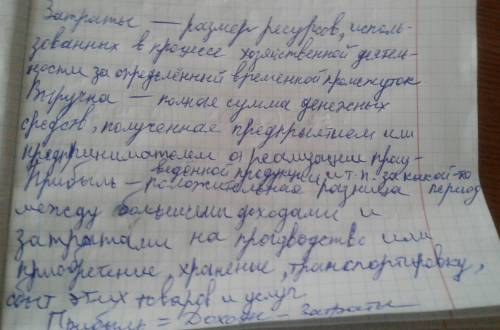 Затраты — размер ресурсов, исполь-
зованных в процессе хозяйственной деятель-
ности за определённый временной промежуток
Выручка — полная сумма денежных
средств, полученная предприятием или
предпринимателем от реализации произ-
веденной продукции и т.п. за какой-то
Прибыль — положительная разница период
между большими доходами и
затратами на производство или
приобретение, хранение, транспортировку,
сбыт этих товаров и услуг
Прибыль = Доходы — Затраты